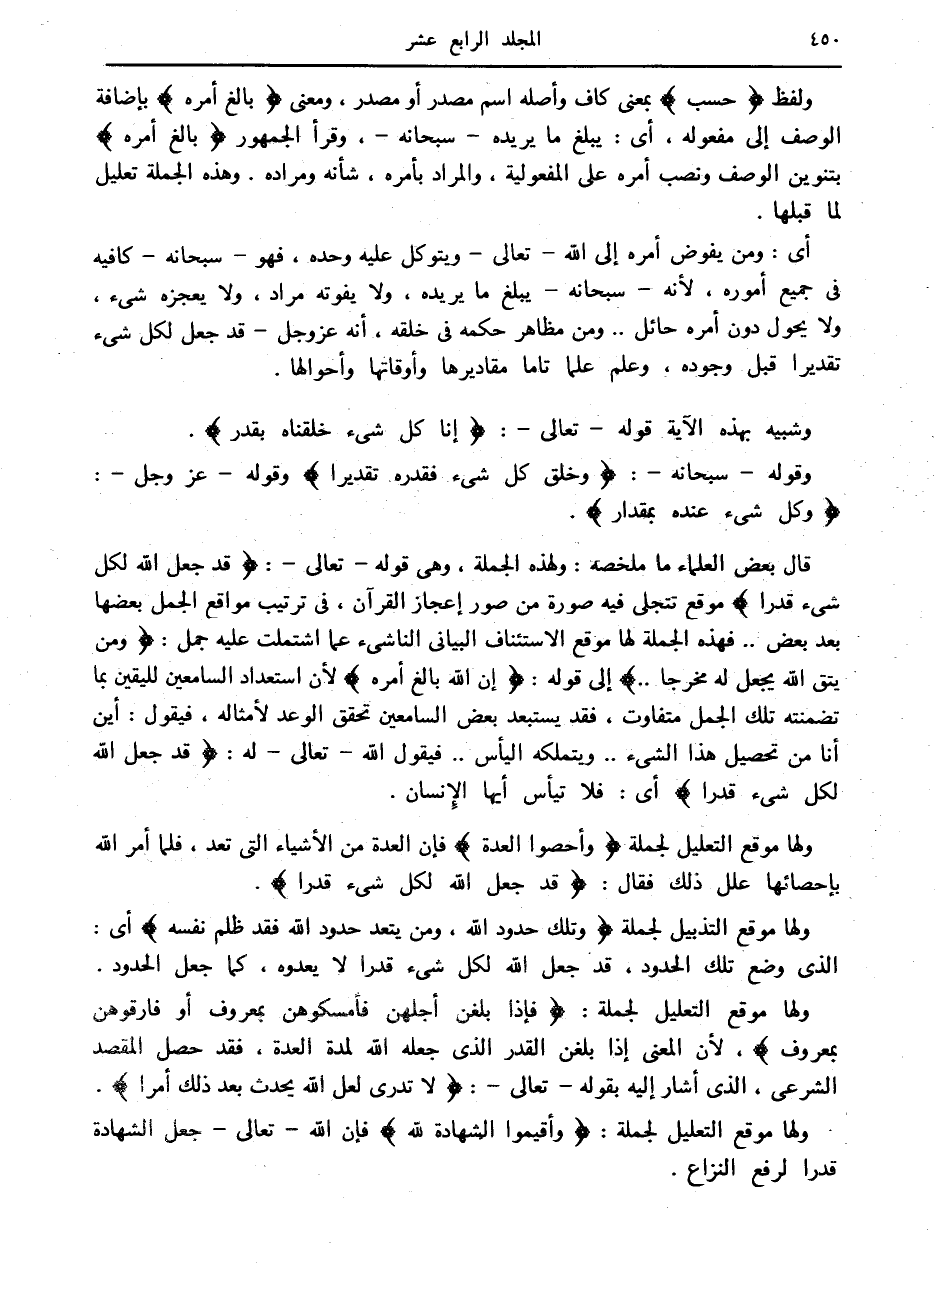 ٤٥٠ المجلد الرابع عشر
ولفظ ﴿ حسب ﴾ بمعنى كاف وأصله اسم مصدر أو مصدر ، ومعنى ﴿ بالغ أمره ﴾ بإضافة
الوصف إلى مفعوله ، أى : يبلغ ما يريده – سبحانه – ، وقرأ الجمهور ﴿ بالغ أمره ﴾
بتنوين الوصف ونصب أمره على المفعولية ، والمراد بأمره ، شأنه ومراده . وهذه الجملة تعليل
لما قبلها .
أى : ومن يفوض أمره إلى الله – تعالى – ويتوكل عليه وحده ، فهو – سبحانه – كافيه
فى جميع أموره ، لأنه – سبحانه – يبلغ ما يريده ، ولا يفوته مراد ، ولا يعجزه شىء ،
ولا يحول دون أمره حائل .. ومن مظاهر حكمه فى خلقه ، أنه عزوجل – قد جعل لكل شىء
تقديرا قبل وجوده ، وعلم علما تاما مقاديرها وأوقاتها وأحوالها .
وشبيه بهذه الآية قوله – تعالى – : ﴿ إنا كل شىء خلقناه بقدر ﴾ .
وقوله – سبحانه – : ﴿ وخلق كل شىء فقدره تقديرا ﴾ وقوله – عز وجل – :
﴿ وكل شىء عنده بمقدار ﴾ .
قال بعض العلماء ما ملخصه : ولهذه الجملة ، وهى قوله – تعالى – : ﴿ قد جعل الله لكل
شىء قدرا ﴾ موقع تتجلى فيه صورة من صور إعجاز القرآن ، فى ترتيب مواقع الجمل بعضها
بعد بعض .. فهذه الجملة لها موقع الاستئناف البيانى الناشىء عما اشتملت عليه جمل : ﴿ ومن
يتق الله يجعل له مخرجا ..﴾ إلى قوله : ﴿ إن الله بالغ أمره ﴾ لأن استعداد السامعين لليقين بما
تضمنته تلك الجمل متفاوت ، فقد يستبعد بعض السامعين تحقق الوعد لأمثاله ، فيقول : أين
أنا من تحصيل هذا الشىء .. ويتملكه اليأس .. فيقول الله – تعالى – له : ﴿ قد جعل الله
لكل شىء قدرا ﴾ أى : فلا تيأس أيها الإنسان .
ولها موقع التعليل لجملة ﴿ وأحصوا العدة ﴾ فإن العدة من الأشياء التى تعد ، فلما أمر الله
بإحصائها علل ذلك فقال : ﴿ قد جعل الله لكل شىء قدرا ﴾ .
ولها موقع التذييل لجملة ﴿ وتلك حدود الله ، ومن يتعد حدود الله فقد ظلم نفسه ﴾ أى :
الذى وضع تلك الحدود ، قد جعل الله لكل شىء قدرا لا يعدوه ، كما جعل الحدود .
ولها موقع التعليل لجملة : ﴿ فإذا بلغن أجلهن فأمسكوهن بمعروف أو فارقوهن
بمعروف ﴾ ، لأن المعنى إذا بلغن القدر الذى جعله الله لمدة العدة ، فقد حصل المقصد
الشرعى ، الذى أشار إليه بقوله – تعالى – : ﴿ لا تدرى لعل الله يحدث بعد ذلك أمرا ﴾ .
ولها موقع التعليل لجملة : ﴿ وأقيموا الشهادة لله ﴾ فإن الله – تعالى – جعل الشهادة
قدرا لرفع النزاع .